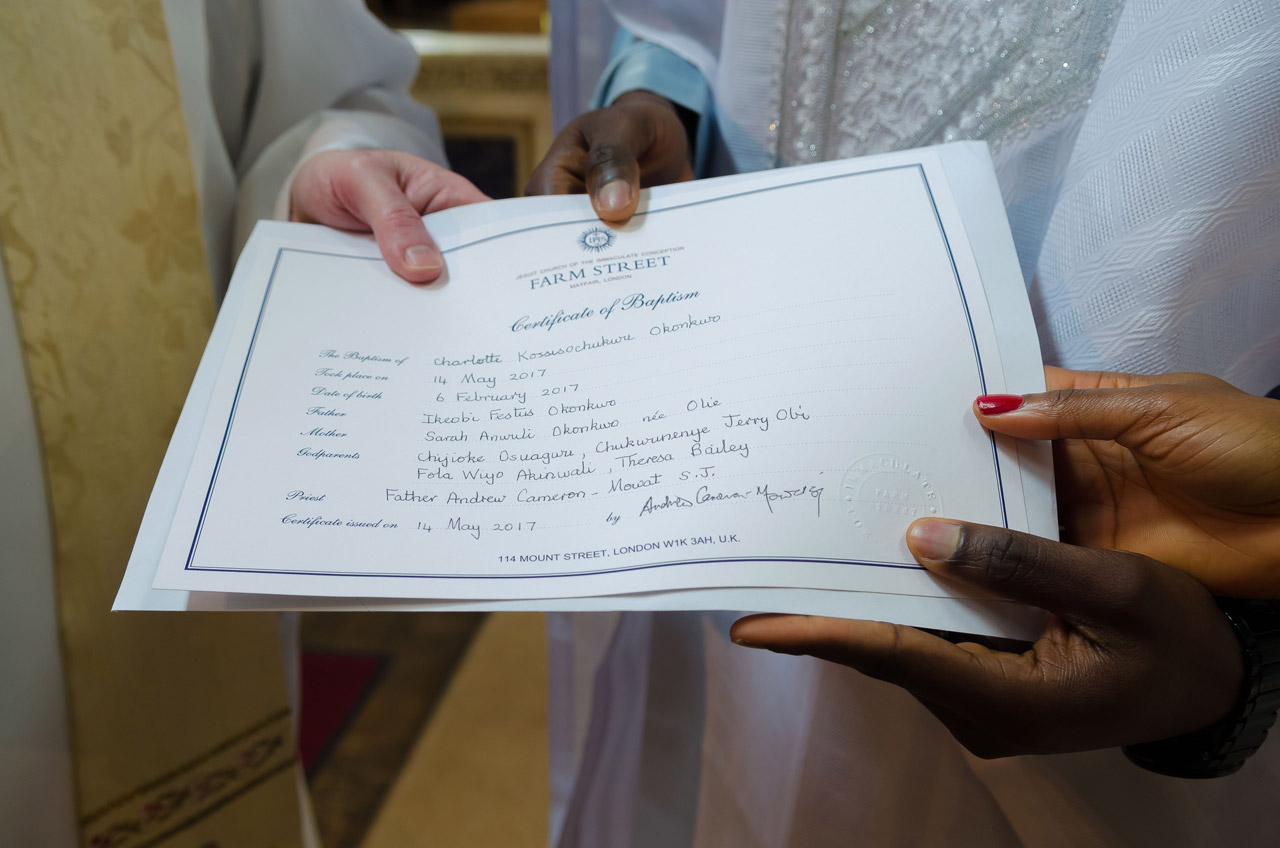 IHS
JESUIT CHURCH OF THE IMMACULATE CONCEPTION
FARM STREET
MAYFAIR, LONDON
Certificate of Baptism
The Baptism of Charlotte Kossisochukwu Okonkwo
Took place on 14 May 2017
Date of birth 6 February 2017
Father Ikeobi Festus Okonkwo
Mother Sarah Anwuli Okonkwo née Olie
Godparents Chijioke Osuagwu, Chukwunenye Jerry Obi
Fola Wiyo Akinwali, Theresa Bailey
Priest Father Andrew Cameron-Mowat S.J.
Certificate issued on 14 May 2017 by Andrew Cameron-Mowat SJ
114 MOUNT STREET, LONDON W1K 3AH, U.K.
IMMACULATE
FARM
STREET